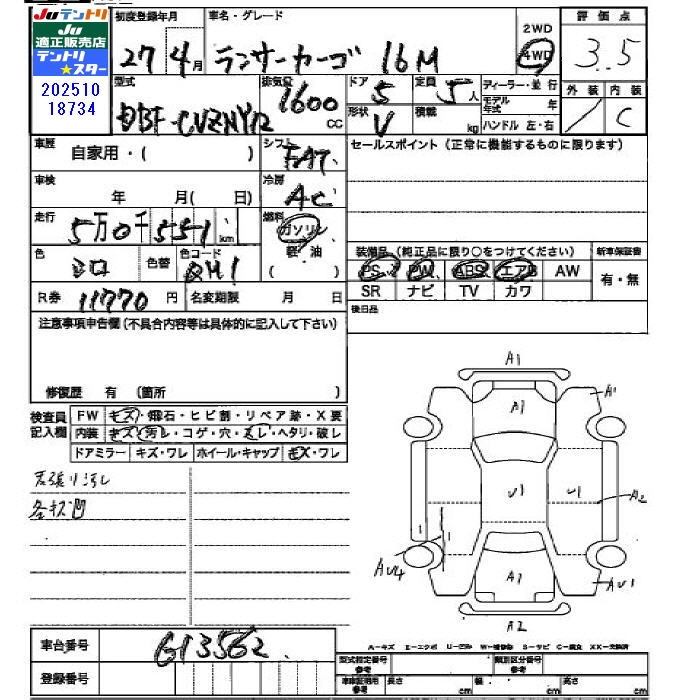 Juテントリ
JU
適正販売店
テントリ
★スター
202510
18734
初度登録年月
27 4月
車名・グレード
ランサーカーゴ 16M
2WD
4WD
評価点
3.5
型式
DBF-CVZNY12
排気量
1600 cc
ドア
5
定員
5人
形状
V
積載
kg
ディーラー・並行
モデル年式 年
ハンドル 左・右
外装
内装
/
C
車歴
自家用・( )
シフト
FAT
セールスポイント(正常に機能するものに限ります)
車検
年 月( 日)
冷房
AC
走行
5万0千551 km
燃料
ガソリン
軽・油
( )
色
シロ
色替
色コード
QM1
R券
11770 円
名変期限 月 日
装備品(純正品に限り○をつけてください)
新車保証書
PS PW ABS エアB AW
SR ナビ TV カワ
有・無
後日品
注意事項申告欄(不具合内容等は具体的に記入して下さい)
修復歴 有 (箇所 )
検査員
記入欄
FW キズ・飛石・ヒビ割・リペア跡・X要
内装 キズ・汚レ・コゲ・穴・スレ・ヘタリ・破レ
ドアミラー キズ・ワレ ホイール・キャップ キズ・ワレ
天張り汚レ
各キズ凹
A1
A1
A1
U1
U1
A2
1
1
AU4
A1
AU1
A2
A-キズ E-エクボ U-凹み W-補修跡 S-サビ C-腐食 XX-交換済
車台番号
613562
登録番号
型式指定番号
参考
類別区分番号
参考
車庫証明用
参考
長さ cm
幅 cm
高さ cm